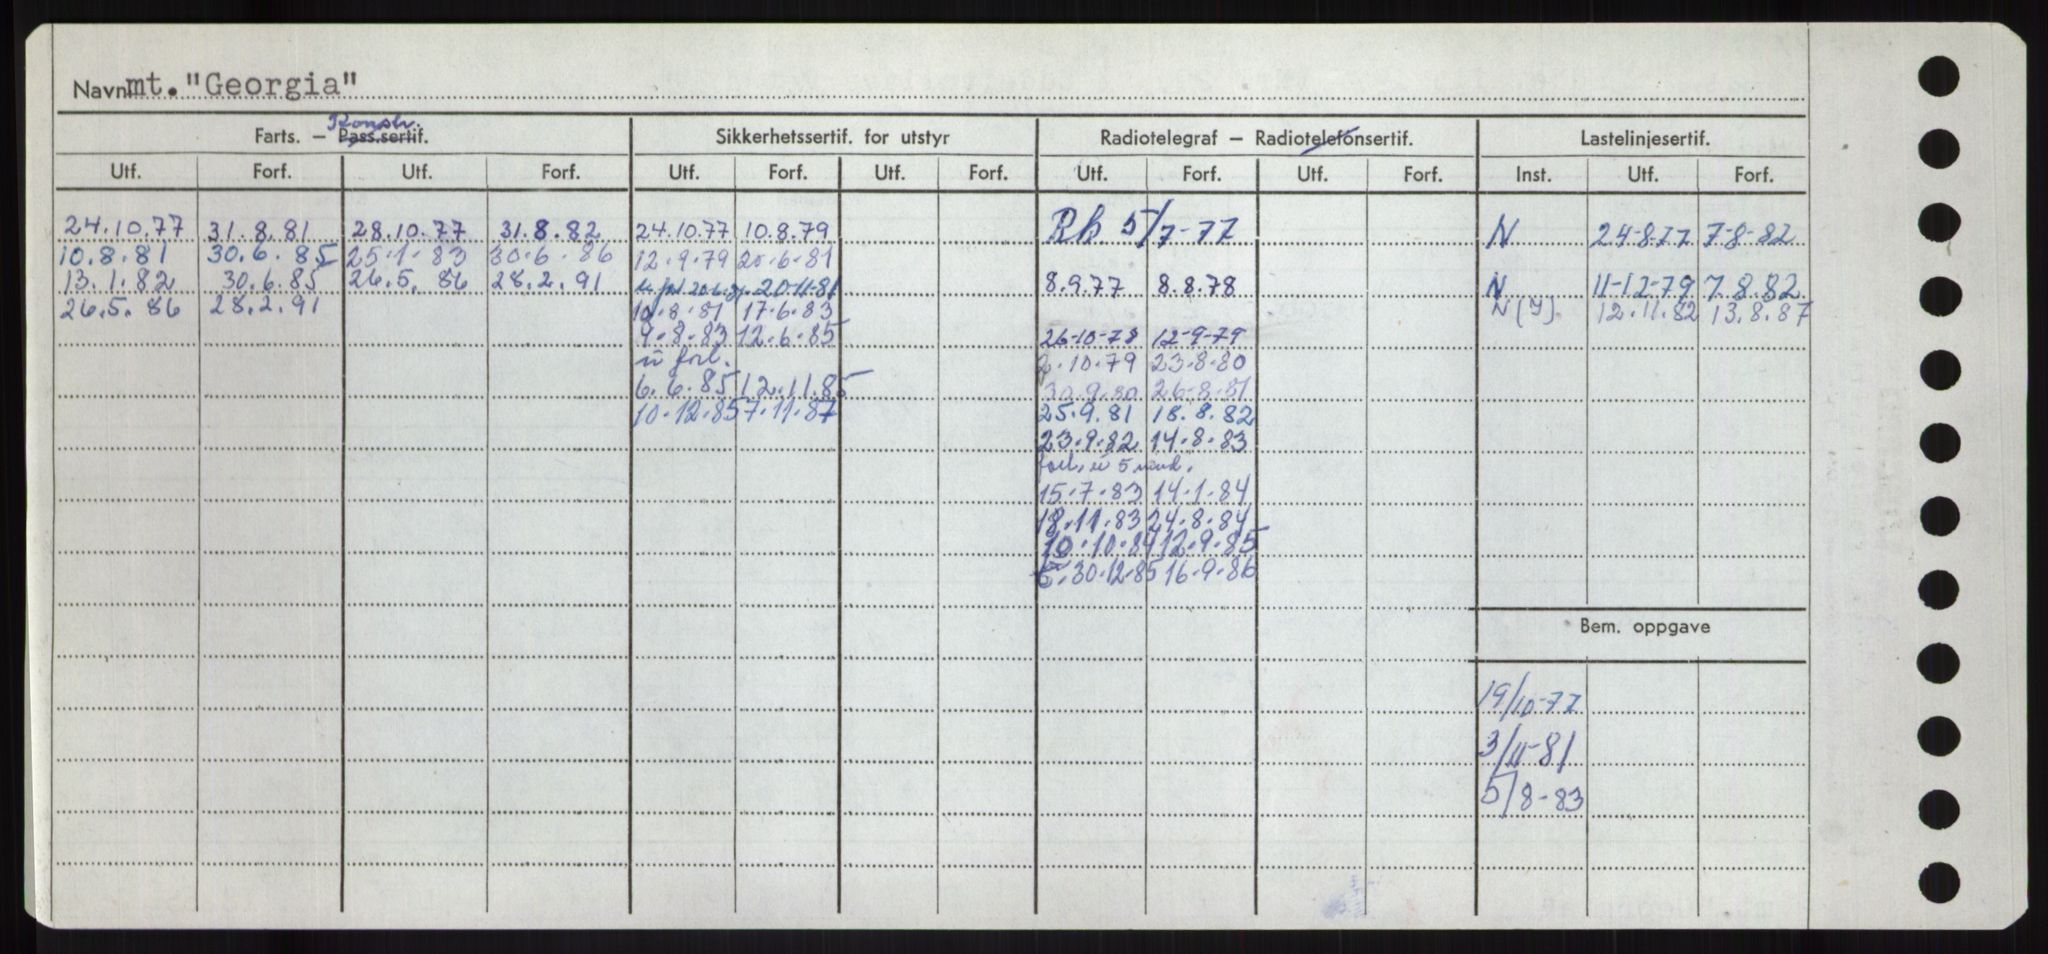 Navn mt. "Georgia"
Konstr.
Farts. — Pass.sertif. Sikkerhetssertif. for utstyr Radiotelegraf — Radiotelefonsertif. Lastelinjesertif.
Utf. Forf. Utf. Forf. Utf. Forf. Utf. Forf. Utf. Forf. Utf. Forf. Inst. Utf. Forf.
24.10.77 31.8.81 28.10.77 31.8.82 24.10.77 10.8.79 Rb. 5/7-77 N 24-8-77 7-8-82
10.8.81 30.6.85 25.1.83 30.6.86 12.9.79 20.6.81
13.1.82 30.6.85 26.5.86 28.2.91 20.6.81 20-11-81 8.9.77 8.8.78 N 11-12-79 7.8.82
26.5.86 28.2.91 10.8.81 17.6.83 N (Y) 12.11.82 13.8.87
9.8.83 12.6.85 26-10-78 12-9-79
ü forl. 2.10.79 23.8.80
6.6.85 12.11.85 30.9.80 26-8-81
10.12.85 7.11.87 25.9.81 18.8.82
23.9.82 14.8.83
forl. ü 5 mnd.
15.7.83 14.1.84
18.11.83 24.8.84
10.10.84 12.9.85
30.12.85 16.9.86
Bem. oppgave
19/10-77
3/11-81
5/8-83